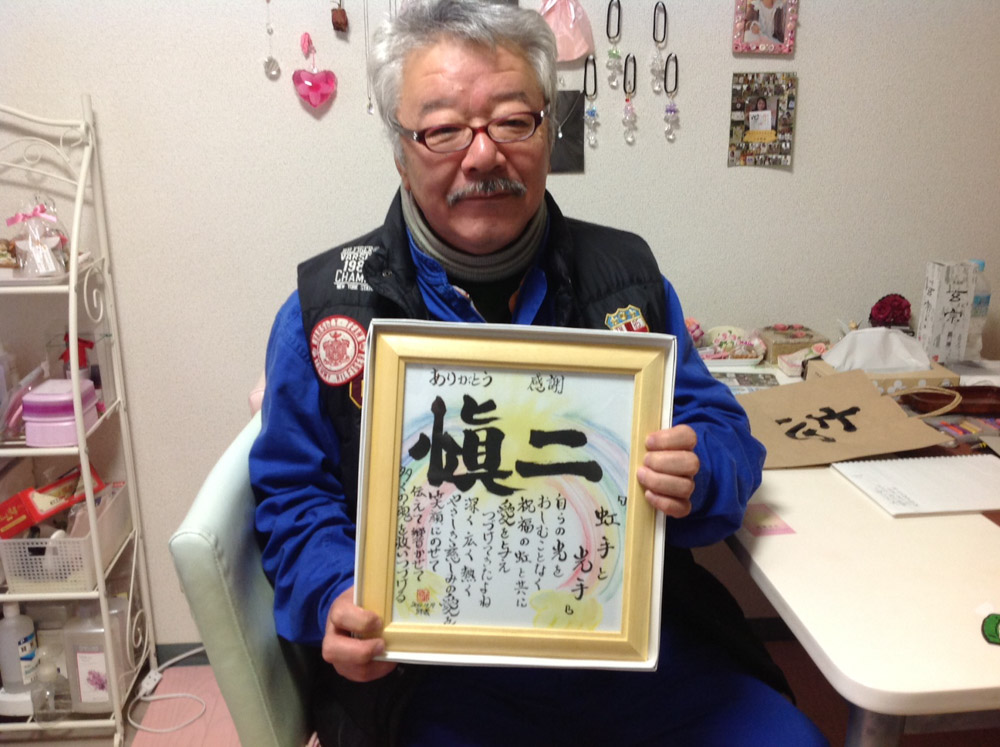 ありがとう
感謝
慎二
虹手と
光手
自らの光を
おしむことなく
祝福の虹と共に
愛を与え
つづけてきたよね
深く広く熱く
やさしき慈しみの愛を
笑顔にのせて
伝えて響かせて
多くの魂を救いつづける
VARSITY
CHAMP
NEW YORK STATE